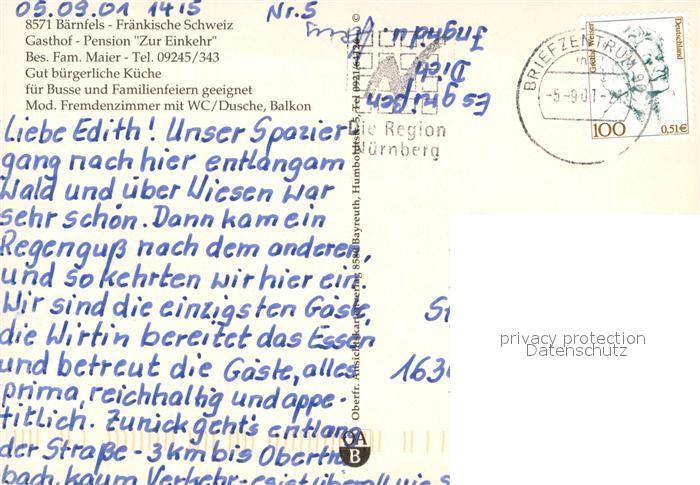 05.09.01 1415 Nr. 5
8571 Bärnfels - Fränkische Schweiz
Gasthof - Pension "Zur Einkehr"
Bes. Fam. Maier - Tel. 09245/343
Gut bürgerliche Küche
für Busse und Familienfeiern geeignet
Mod. Fremdenzimmer mit WC/Dusche, Balkon
Liebe Edith! Unser Spazier-
gang nach hier entlang am
Wald und über Wiesen war
sehr schön. Dann kam ein
Regenguß nach dem anderen,
und so kehrten wir hier ein.
Wir sind die einzigsten Gäste,
die Wirtin bereitet das Essen
und betreut die Gäste, alles
prima, reichhaltig und appe-
titlich. Zurück geht's entlang
der Straße - 3 km bis Obertru
bach, kaum Verkehr - es ist überall wie
Es grüßen
Dich
Ingrid u.
Die Region
Nürnberg
Oberfr. Ansichtskartenverlag 8580 Bayreuth, Humboldtstr. 5, Tel 0921/64126 ©
OA
B
BRIEFZENTRUM 90
-5.-9.01-21
Grethe Weiser
Deutschland
100
0,51€
St
163
privacy protection
Datenschutz